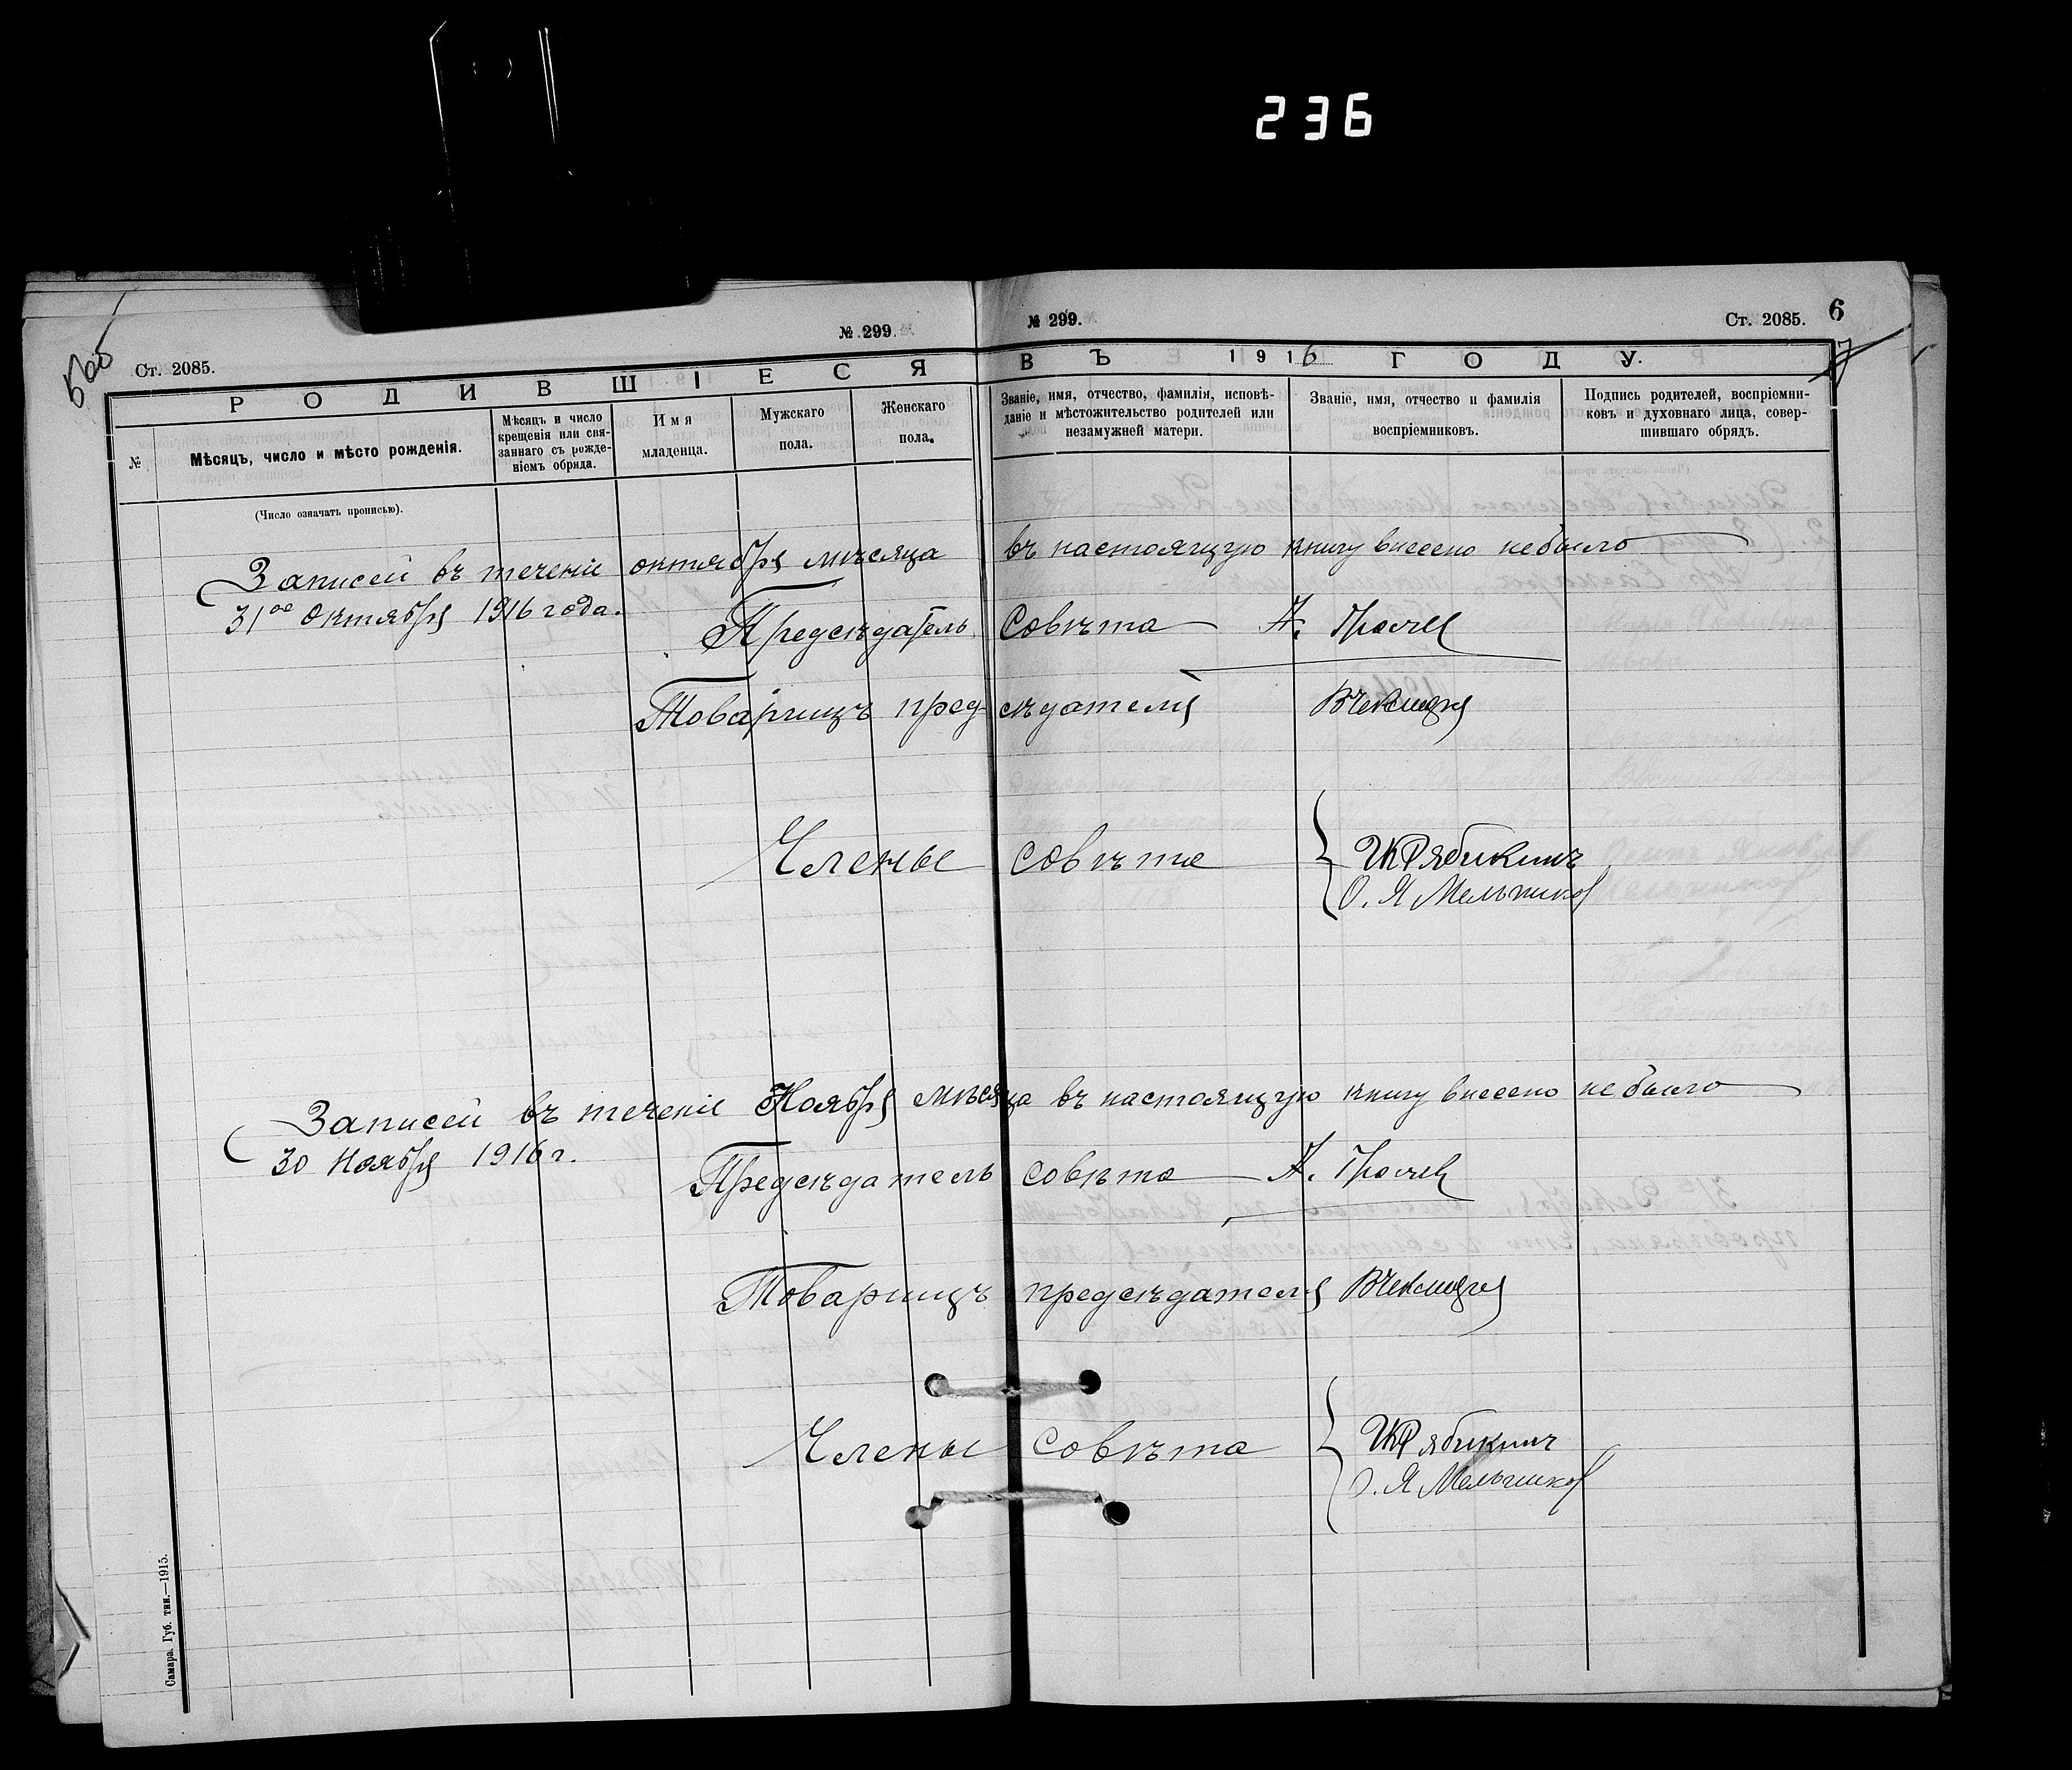 236
5об
Ст. 2085.
№ 299.
№ 299.
Ст. 2085.
6
РОДИВШІЕСЯ ВЪ 1916 ГОДУ.
№
Мѣсяцъ, число и мѣсто рожденія.
Мѣсяцъ и число крещенія или связаннаго съ рожденіемъ обряда.
Имя младенца.
Мужскаго пола.
Женскаго пола.
Званіе, имя, отчество, фамилія, исповѣданіе и мѣстожительство родителей или незамужней матери.
Званіе, имя, отчество и фамилія воспріемниковъ.
Подпись родителей, воспріемниковъ и духовнаго лица, совершившаго обрядъ.
(Число означать прописью).
Записей въ теченіе октября мѣсяца въ настоящую книгу внесено не было
31ое Октября 1916 года.
Предсѣдатель Совѣта А. Грачев
Товарищъ предсѣдателя
Члены совѣта
Рябикинъ
О. Я Мельников
Записей въ теченіе Ноября мѣсяца въ настоящую книгу внесено не было
30 Ноября 1916 г.
Предсѣдатель совѣта А. Грачев
Товарищъ предсѣдателя
Члены совѣта
Рябикинъ
О. Я Мельников
Самара. Губ. тип.—1915.